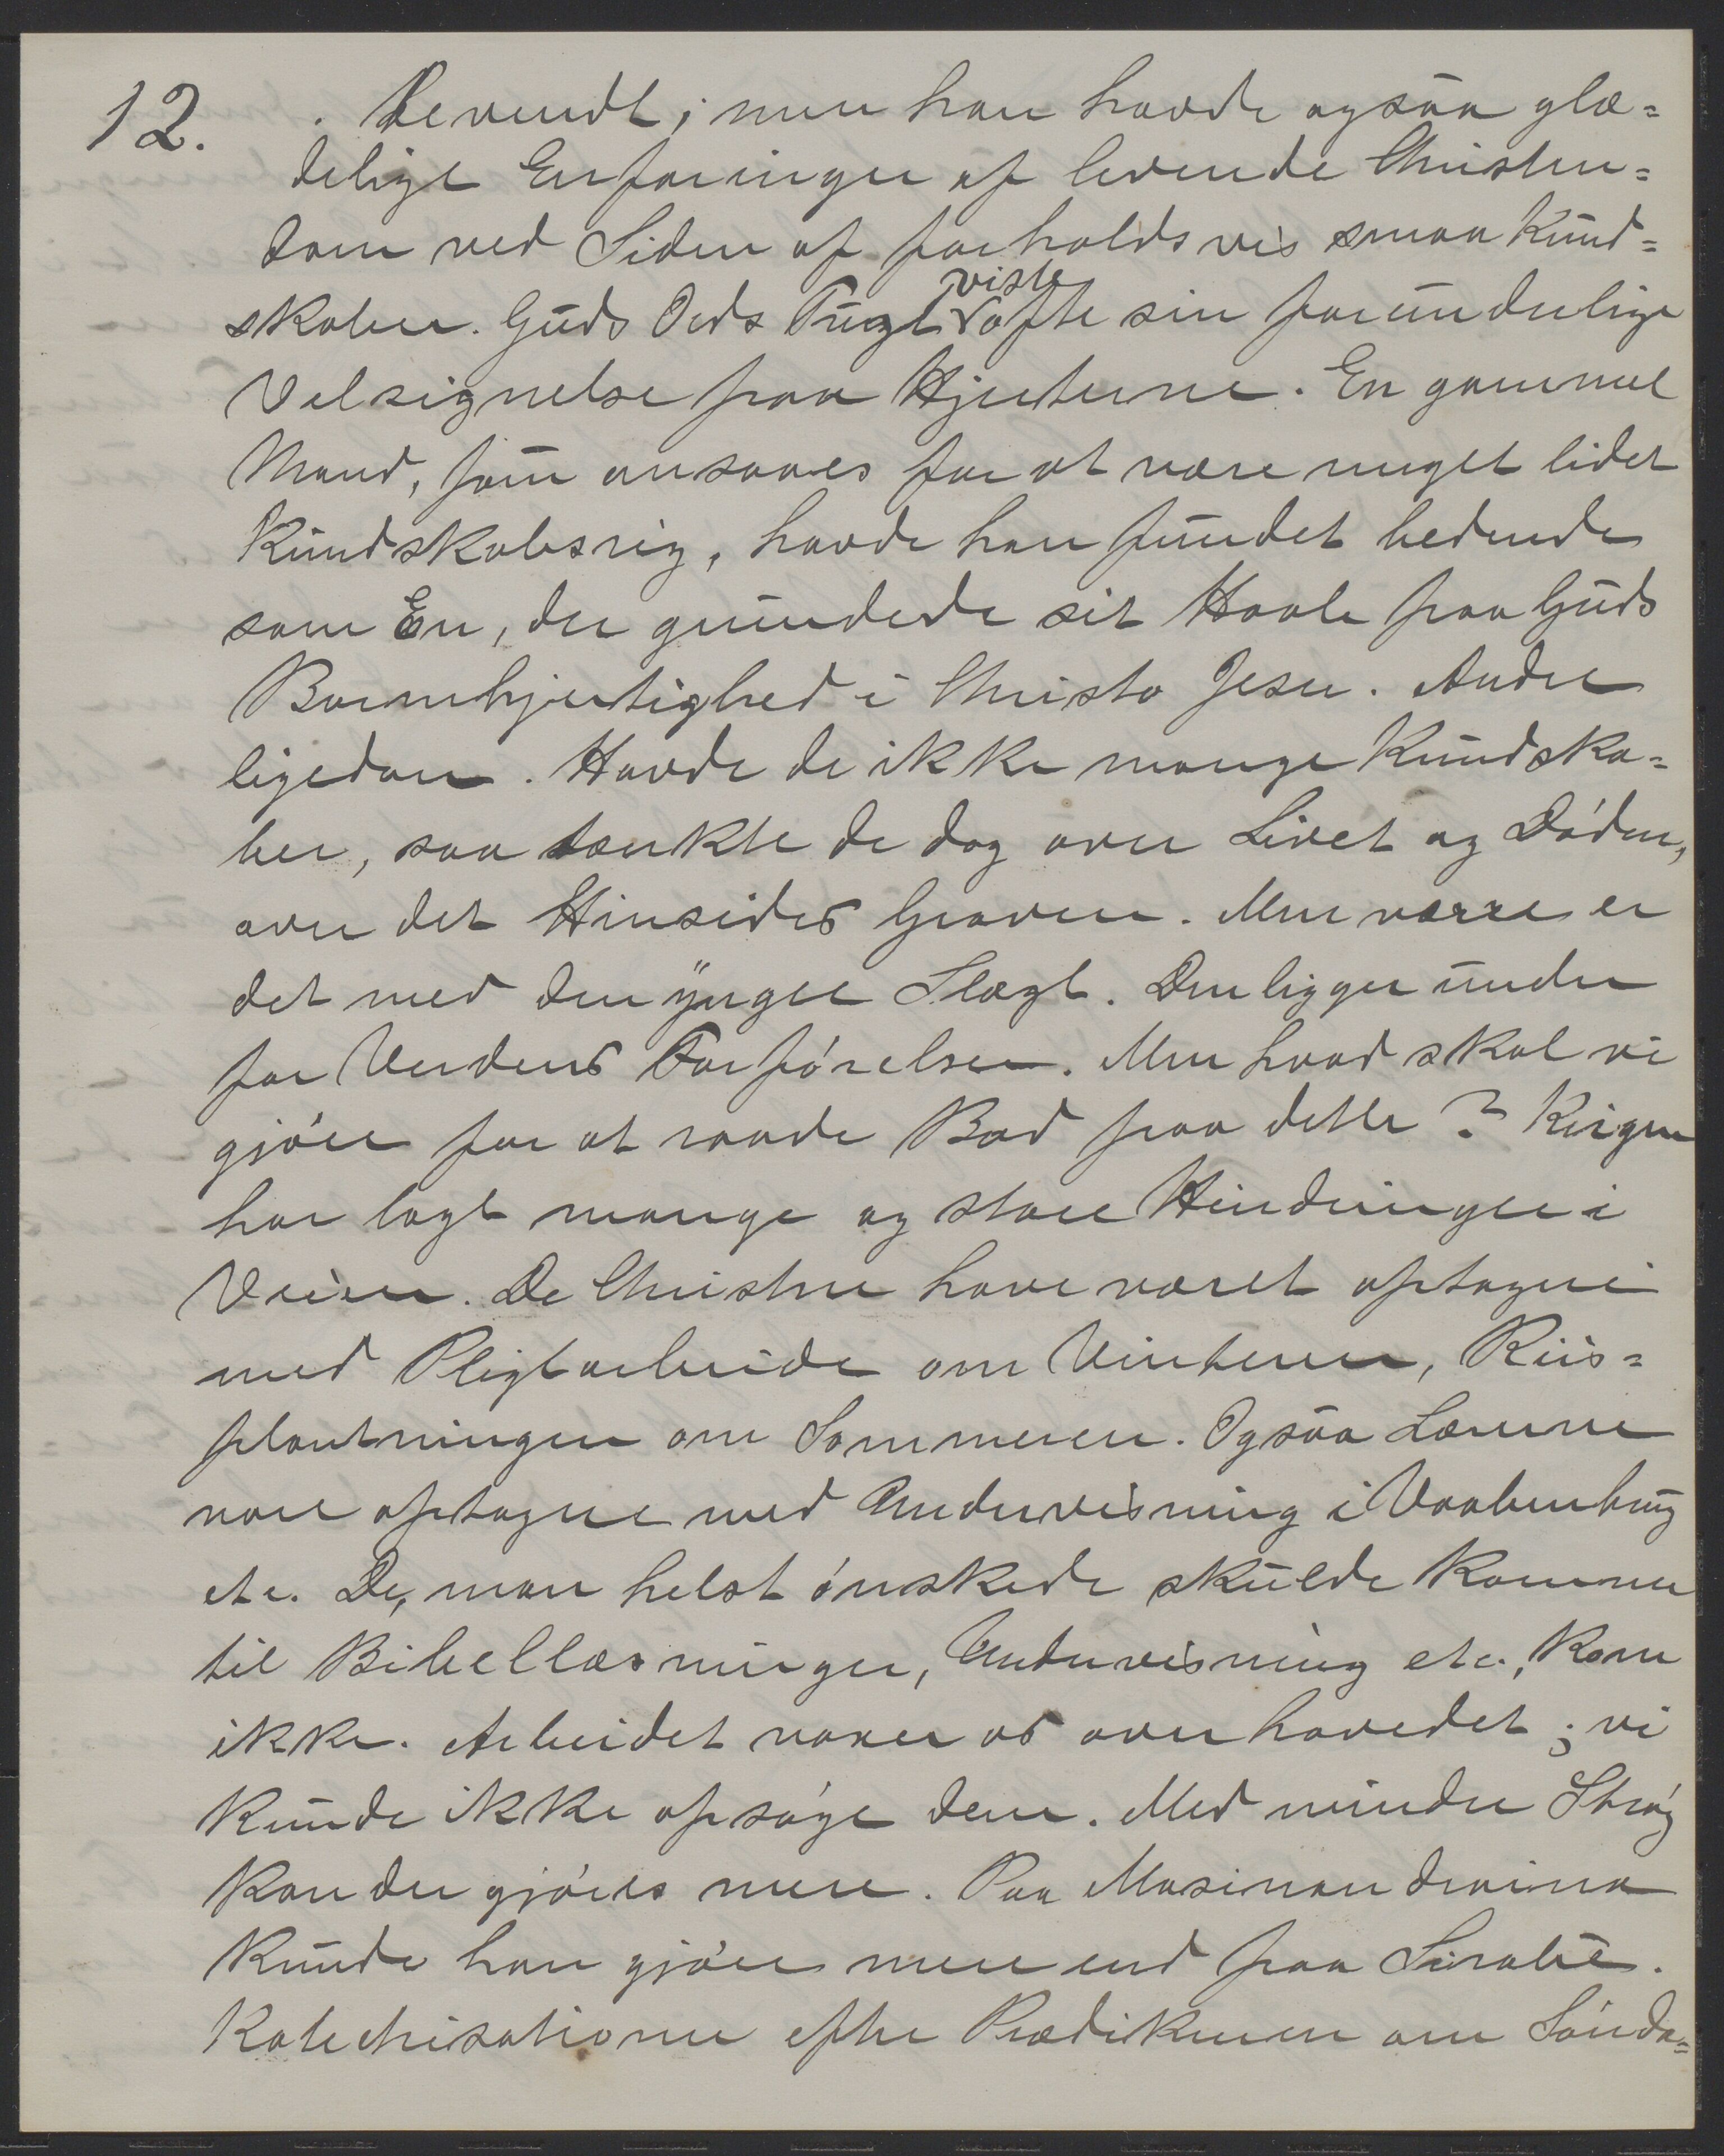 12.
bevendt; men han havde ogsaa glæ=
delige Erfaringer af levende Christen=
dom ved Siden af forholdsvis smaa Kund=
skaber. Guds Ords Tugt viste ofte sin forunderlige
Velsignelse paa Hjerterne. En gammel
Mand, som ansaaes for at være meget lidet
Kundskabsrig, havde han fundet bedende
som En, der grundede sit Haab paa Guds
Barmhjertighed i Christo Jesu. Andre
ligedan. Havde de ikke mange Kundska=
ber, saa tænkte de dog over Livet og Døden,
over det Hinsides Graven. Men værre er
det med den yngre Slægt. Den ligger under
for Verdens Forførelser. Men hvad skal vi
gjøre for at raade Bod paa dette? Krigen
har lagt mange og store Hindringer i
Veien. De Christne have været optagne
med Pligtarbeide om Vinteren, Riis=
plantningen om Sommeren. Ogsaa Lærerne
vare optagne med Undervisning i Vaabenbrug
etc. De, man helst ønskede skulde komme
til Bibellæsninger, Undervisning etc., kom
ikke. Arbeidet voxer os over hovedet; vi
kunde ikke opsøge dem. Med mindre Strøg
kan der gjøres mere. Paa Masinandraina
kunde han gjøre mere end paa Sirabe.
Katechisationen efter Prædikenen om Sønda=